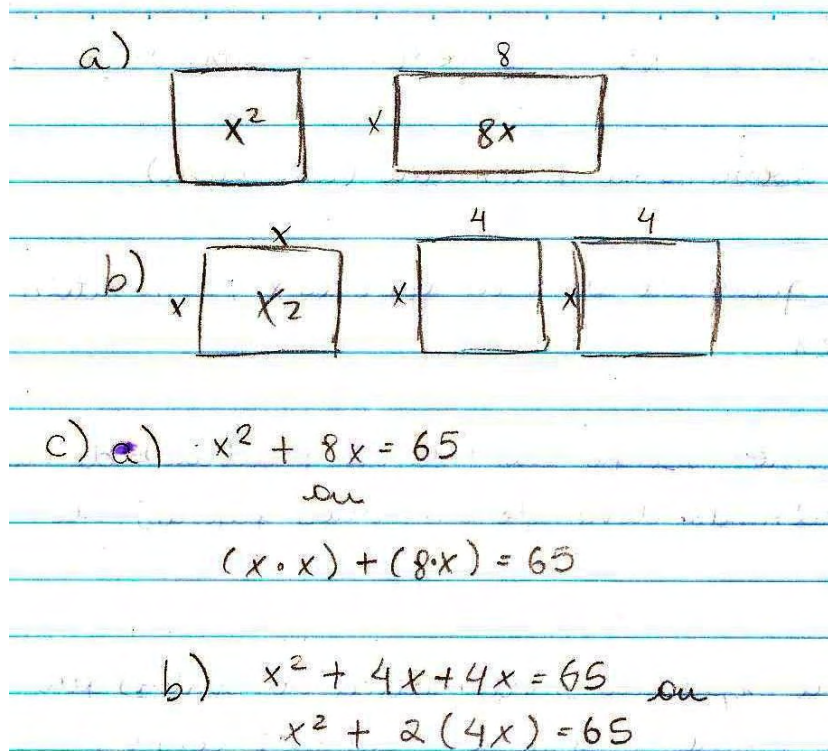 a)
8
x² x 8x
x 4 4
b) x x2 x x
c) a) x² + 8x = 65
ou
(x · x) + (8·x) = 65
b) x² + 4x + 4x = 65 ou
x² + 2(4x) = 65